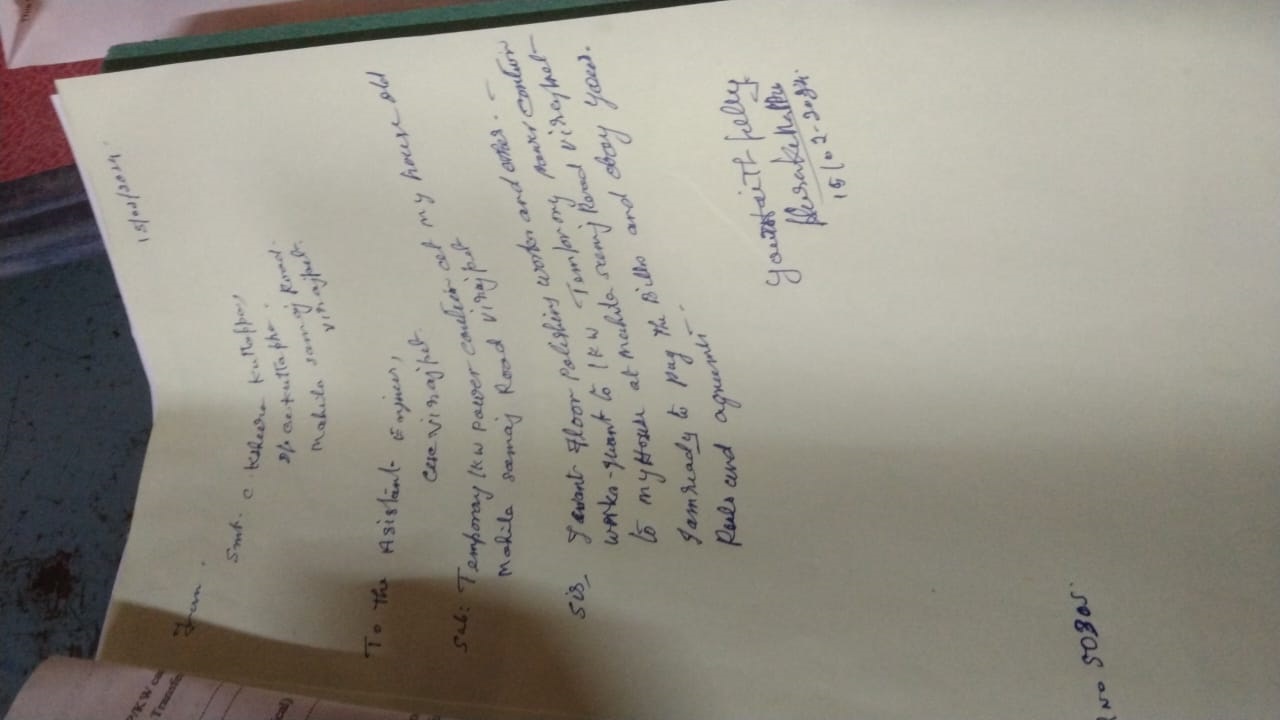 15/02/2024.
From.
Smt. C
Kuttappa,
Mahila samaj Road.
virajpet.
To the Asistant Enjineer,
virajpet.
Sub: Temporay 1KW power contion at my house old
Mahila samaj Road virajpet
Sir_ I want Floor Polishing works and other. -
works - I want to 1 KW Temporary power contion
to my House at Mahila samaj Road virajpet -
I am ready to pay the Bills and obay your.
Ruls and agreement.
your faith fully
15/02-2024.
R No 50305.
P/KW
Transfor